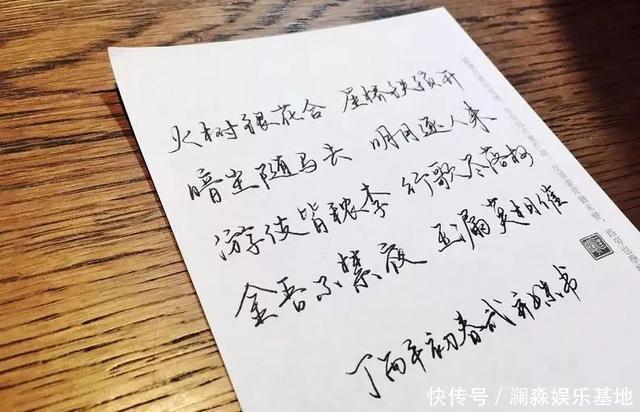 火树银花合 星桥铁锁开
暗尘随马去 明月逐人来
游伎皆秾李 行歌尽落梅
金吾不禁夜 玉漏莫相催
丁酉年初春武书
快传号/澜淼娱乐基地